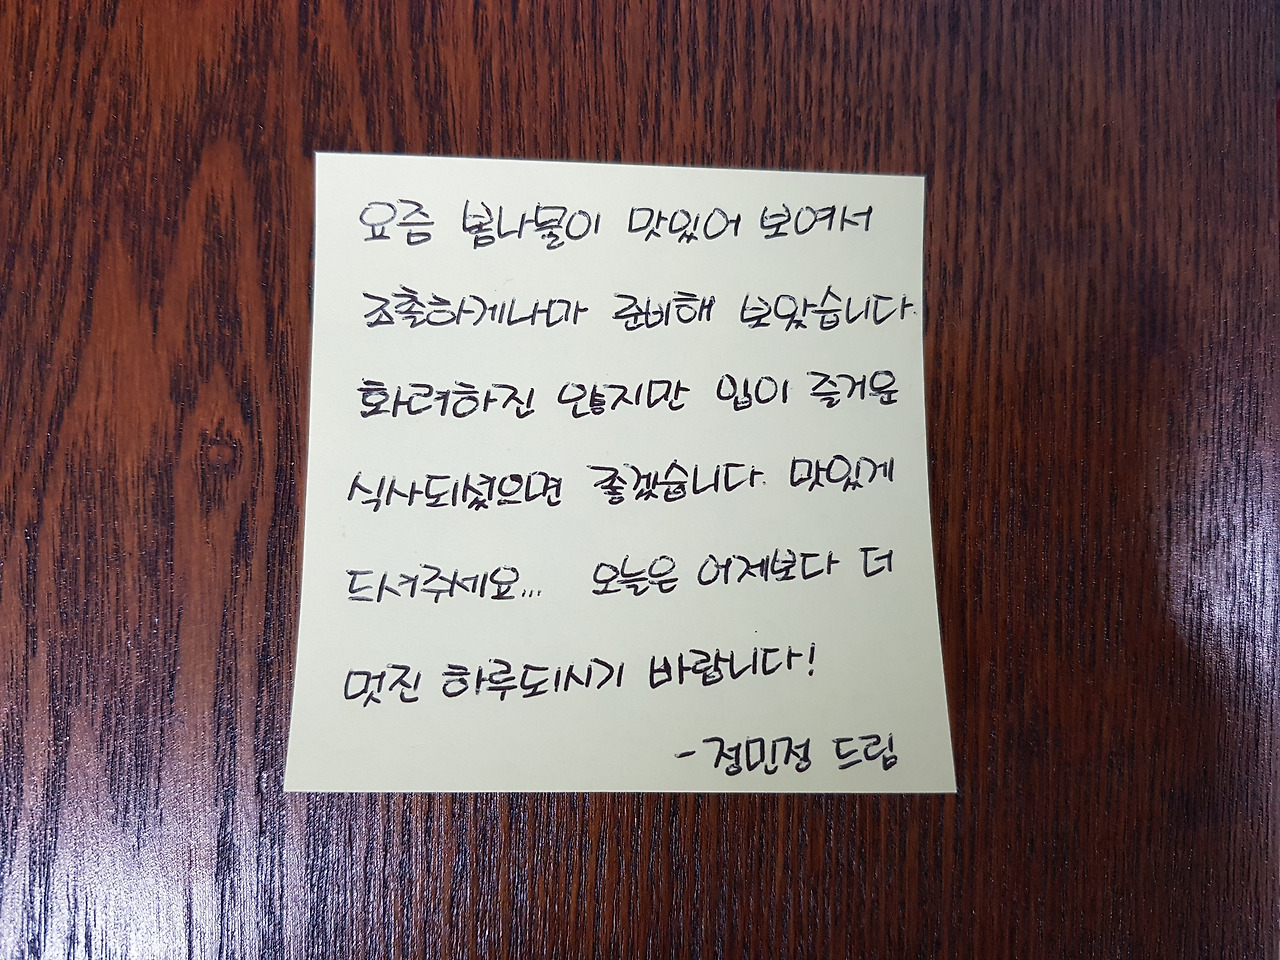 요즘 봄나물이 맛있어 보여서
조촐하게나마 준비해 보았습니다.
화려하진 않지만 입이 즐거운
식사되셨으면 좋겠습니다. 맛있게
드셔주세요... 오늘은 어제보다 더
멋진 하루되시기 바랍니다!
- 정민정 드림